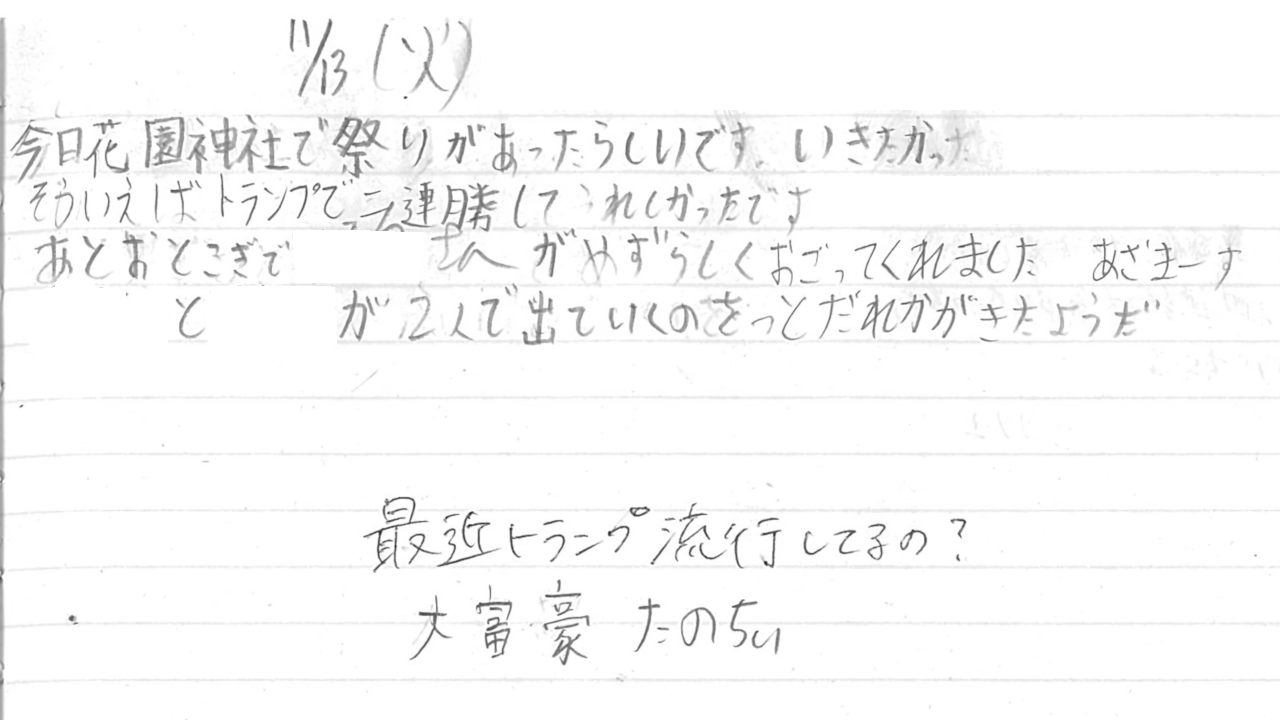 11/13(火)
今日花園神社で祭りがあったらしいです。いきたかった
そういえばトランプで三連勝してうれしかったです
あとおとこぎで さんがめずらしくおごってくれました あざまーす
と が2人で出ていくのをっとだれかがきたようだ
最近トランプ流行してるの?
大富豪 たのちぃ